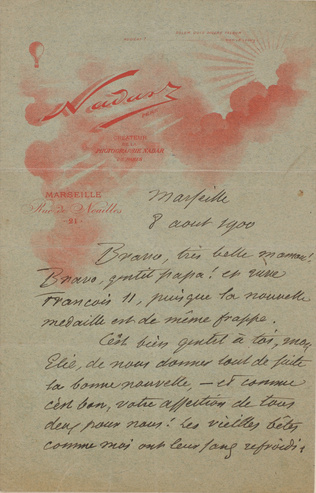 Nadar
CRÉATEUR
DE LA
PHOTOGRAPHIE NADAR
DE PARIS
MARSEILLE
Rue de Noailles
21
Marseille
8 aout 1900
Bravo, très belle maman!
Bravo, gentil papa! et vive
François II, puisque la nouvelle
medaille est de même frappe.
C'est bien gentil à toi, mon
Elie, de nous donner tout de suite
la bonne nouvelle, — et comme
c'est bon, votre affection de tous
deux pour nous! Les vieilles bêtes
comme moi ont leur sang refroidi: